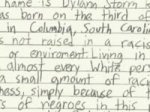 name is Dylann Storm
as born on the third of
in Columbia, South Carolin
not raised in a racis
or enviroment. living in
almost every White pers
a small amount of rac
ness, simply because of
s of negroes in this